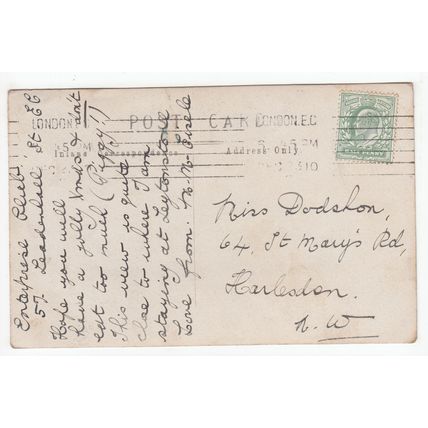 POST CARD
Inland Correspondence
Address Only.
LONDON.E.C
5 45 PM
23 10
LONDON
5 PM
Enterprise Club.
57 Leadenhall St EC
Hope you will
have a jolly Xmas & don't
eat too much (Piggy!)
This view is quite
close to where I am
staying at Leytonstone
Love from
Miss Dodshon,
64, St Mary's Rd,
Harlesden.
N. W